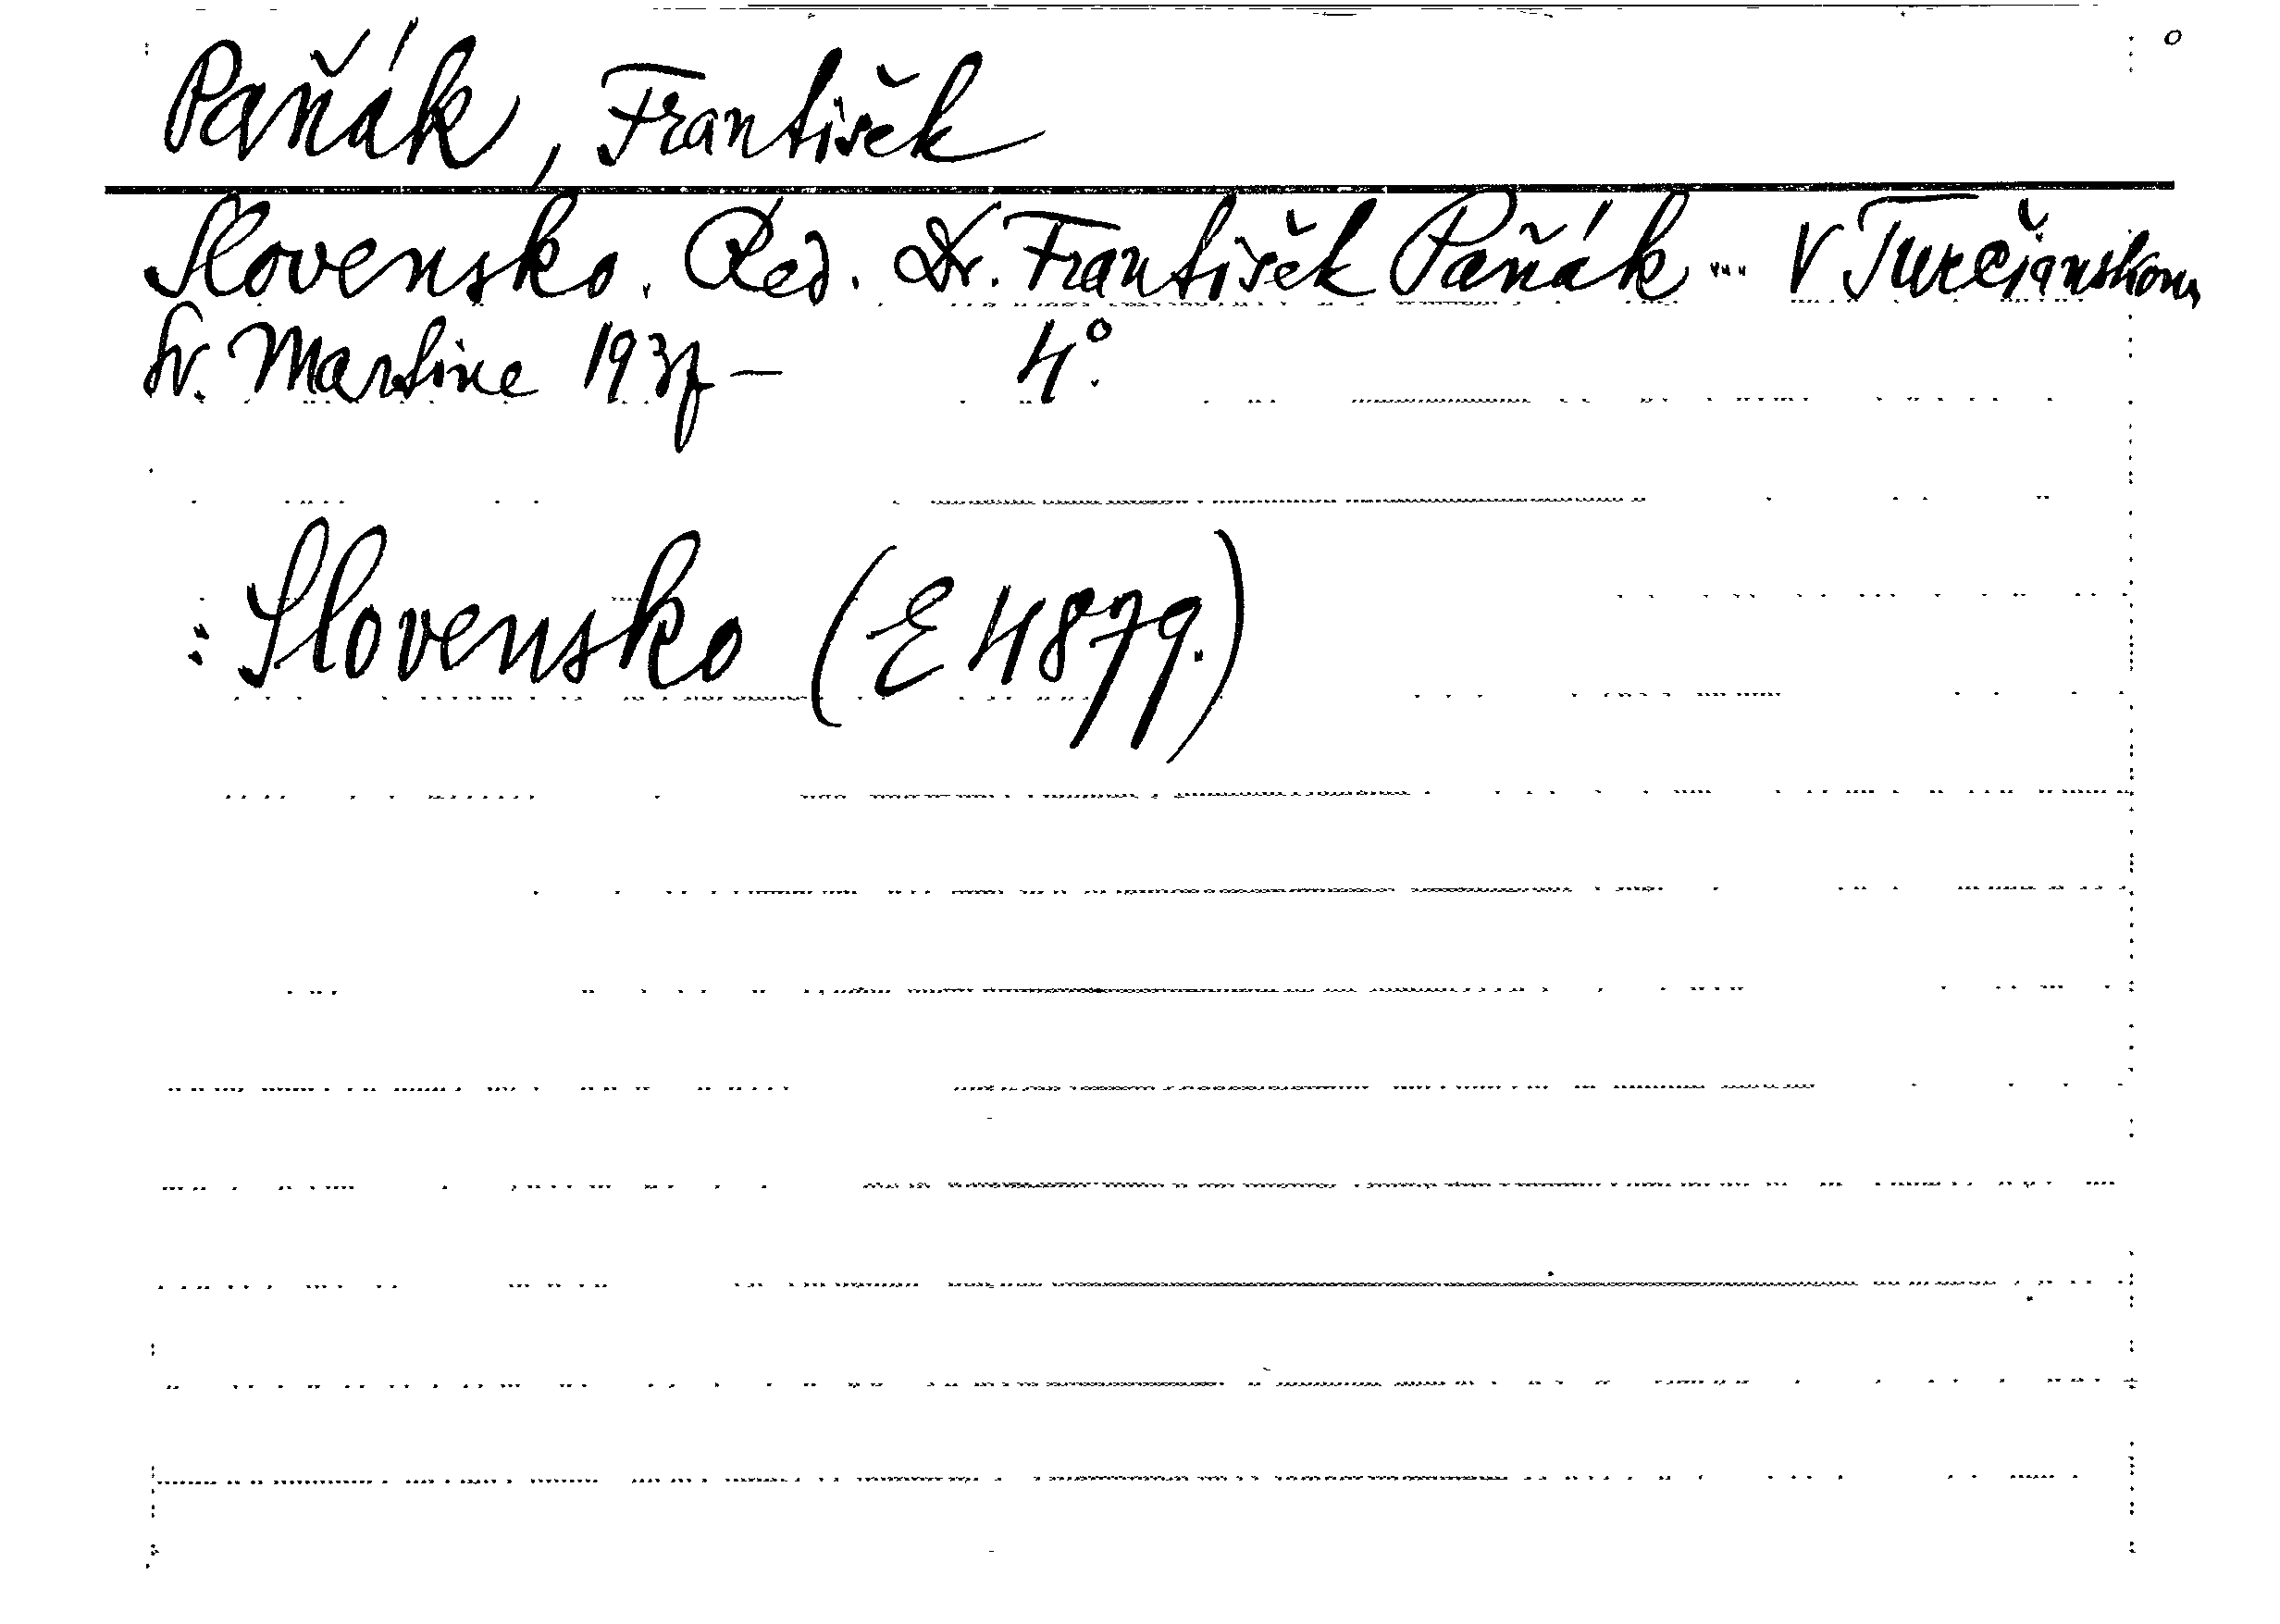 Paňák, František
Slovensko. Red. Dr. František Paňák ... V Turčianskom
Sv. Martine 1937- 4°.
: Slovensko (E 4879.)